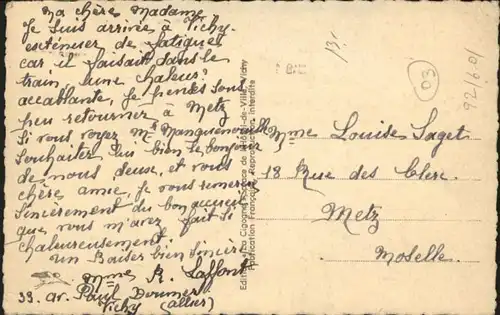 Ma chère Madame
Je suis arrivée à Vichy
extenuer de fatigue
car il faisait dans le
train une chaleur
accablante, Je pense sous
peu retourner à Metz
Si vous voyez Mr
Souhaiter lui bien le bonjour
de nous deux, et vous
chère amie, je vous remercie
sincèrement du bouquet
que vous m'avez fait si
chaleureusement
un Baiser bien sincère
Mme R. Laffont
33. av. Paul Doumer
Vichy (allier)
Mme Louise Saget
18 Rue des Clerc
Metz
Moselle
13f
03
92/601
Place de l'Hôtel-de-Ville, Vichy
Fabrication Française, Reproduction interdite